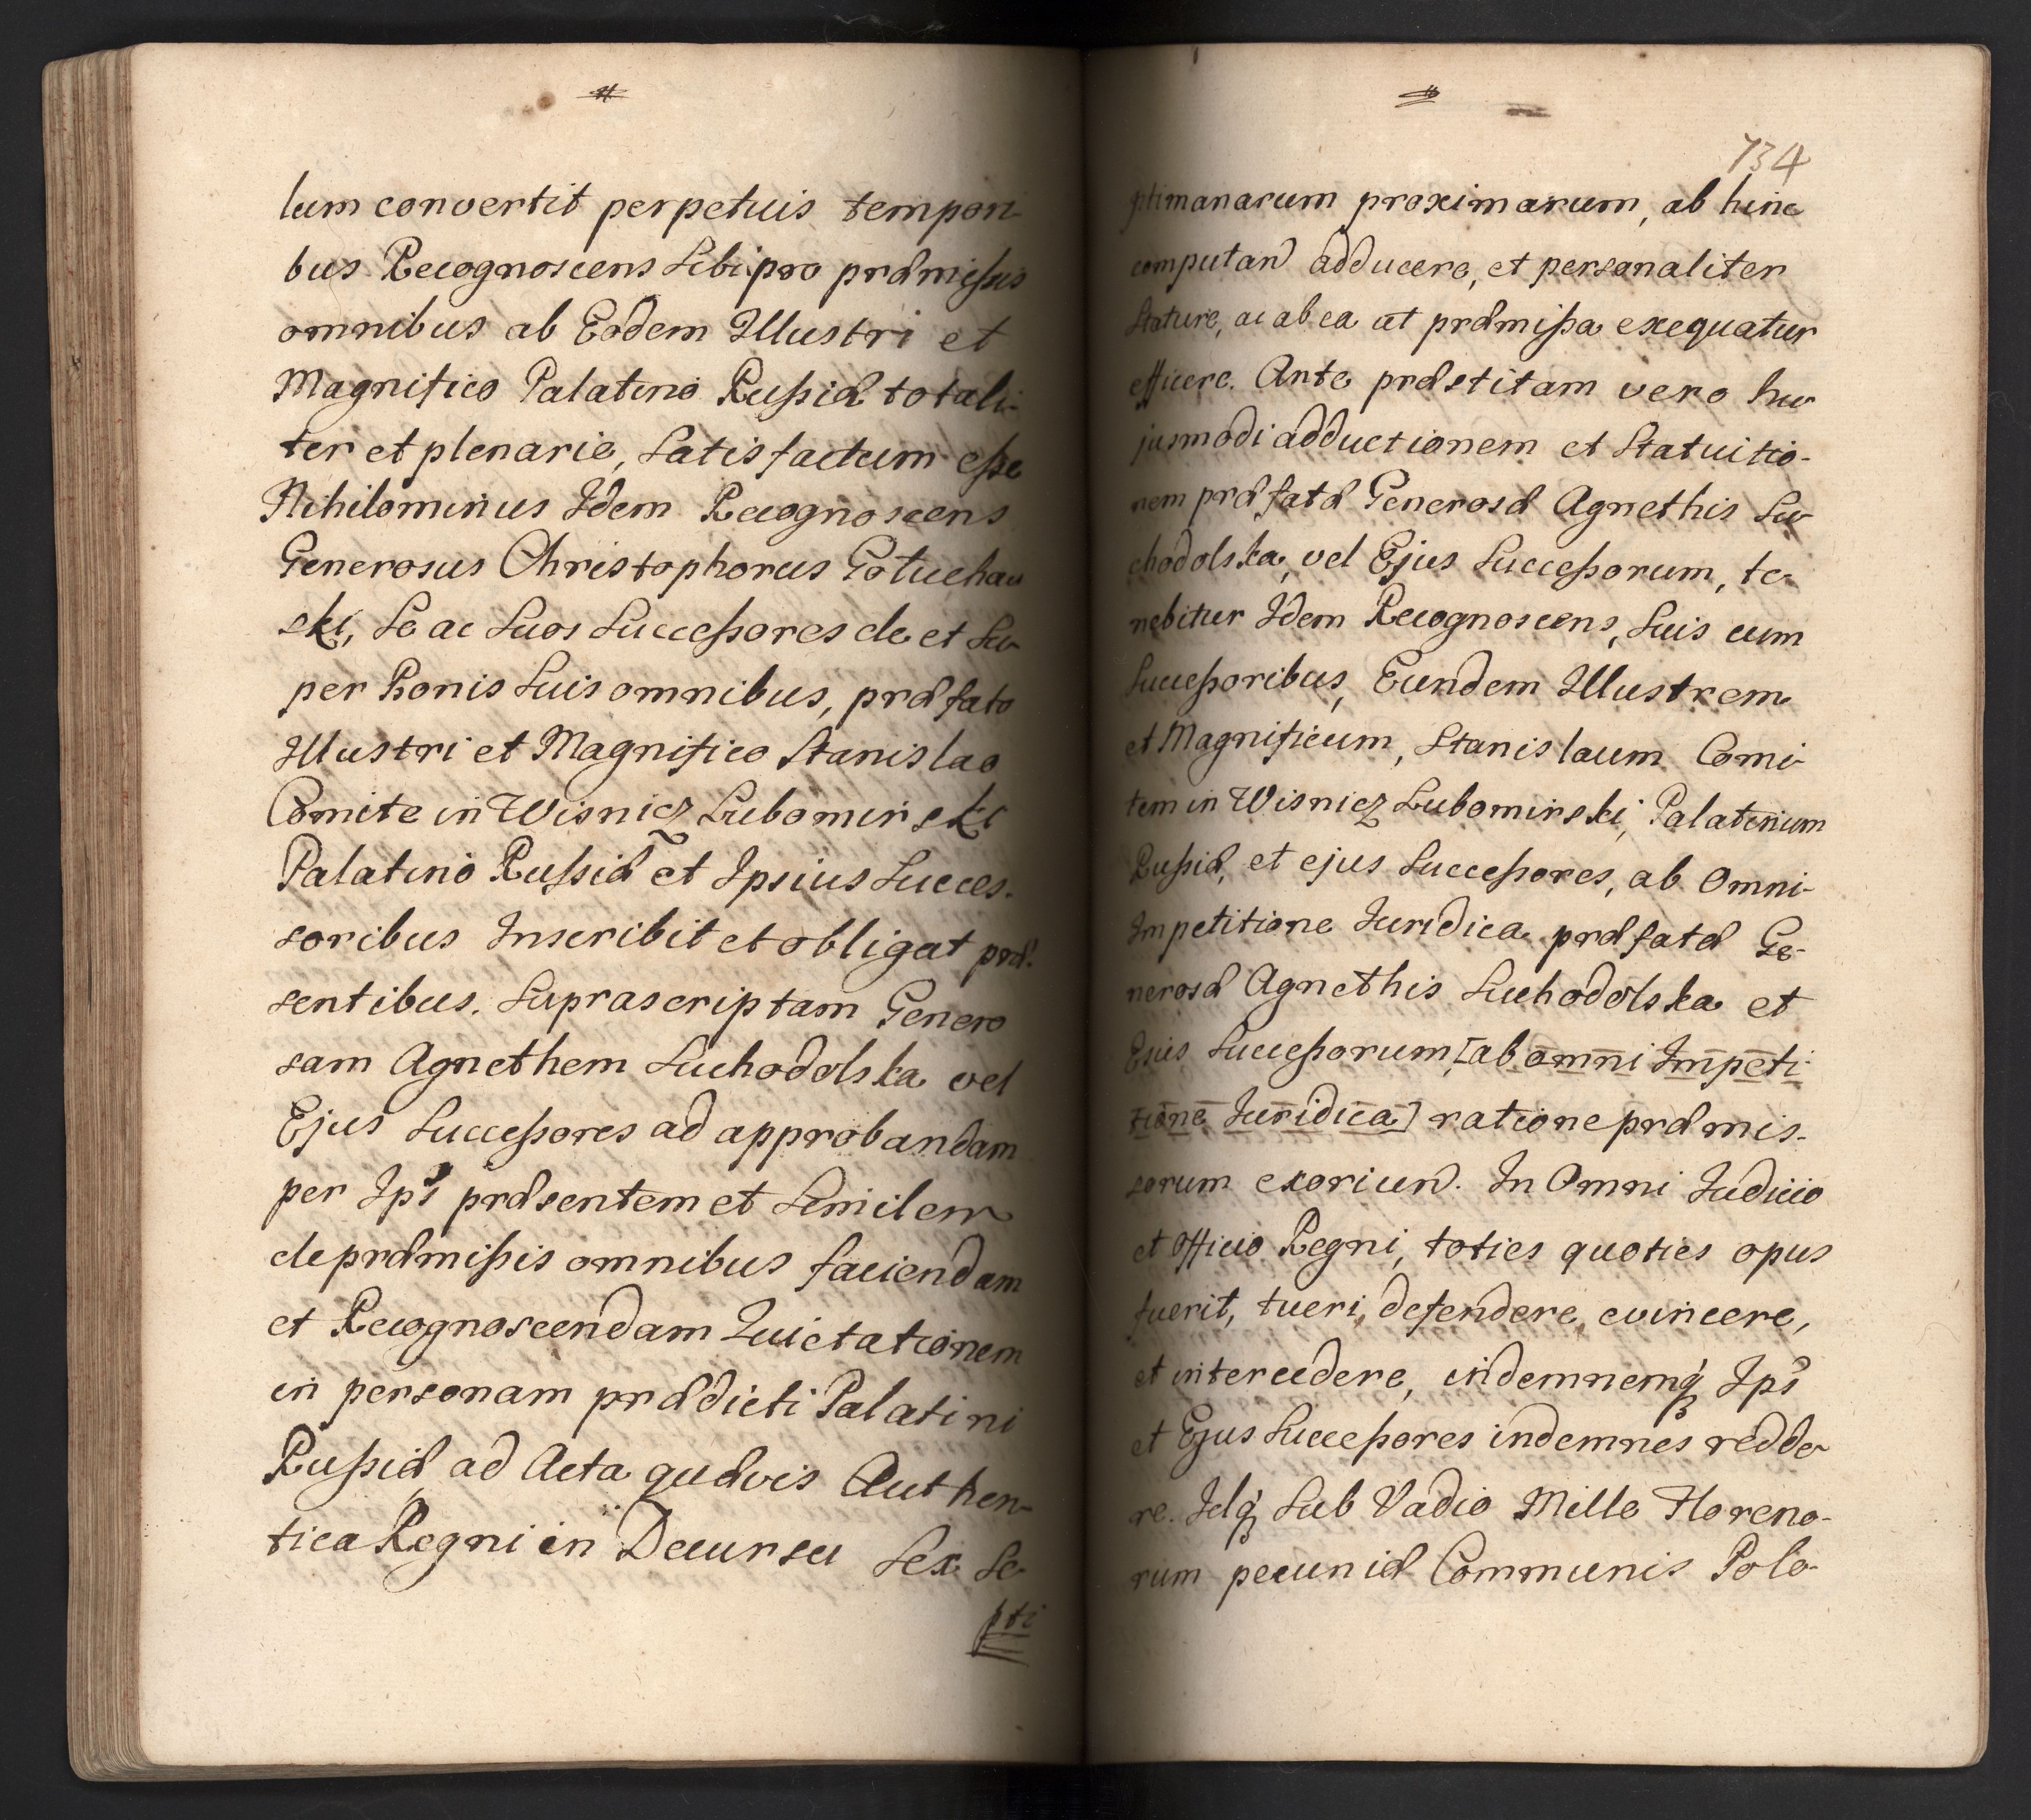 lum convertit perpetuis tempori-
bus Recognoscens Sibi pro præmissis
omnibus ab Eodem Illustri et
Magnifico Palatino Russiæ totali-
ter et plenarie, Satisfactum esse
Nihilominus Idem Recognoscens
Generosus Christophorus Gotuchow
ski, Se ac Suos Successores de et Su-
per Bonis Suis omnibus, præfato
Illustri et Magnifico Stanislao
Comite in Wisnicz Lubomirski
Palatino Russiæ et Ipsius Succes-
soribus Inscribit et obligat præ-
sentibus. Suprascriptam Genero
sam Agnethem Suchodolska vel
Ejus Successores ad approbandam
per Ips præsentem et Similem
de præmissis omnibus faciendam
et Recognoscendam Quietationem
in personam prædicti Palatini
Russiæ ad Acta quævis Authen-
tica Regni in Decursu Sex Se-
pti
734
ptimanarum proximarum, ab hinc
computan adducere, et personaliter
Stature, ac ab ea ut præmissa exequatur
efficere. Ante præstitam vero hu-
jusmodi adductionem et Statuitio-
nem præfatæ Generosæ Agnethis Su-
chodolska, vel Ejus Successorum, te-
nebitur Idem Recognoscens, Suis cum
Successoribus, Eundem Illustrem
et Magnificum, Stanislaum Comi-
tem in Wisnicz Lubomirski, Palatinum
Russiæ, et ejus Successores, ab Omni-
Impetitione Juridica præfatæ Ge-
nerosæ Agnethis Suchodolska et
Ejus Successorum, [ab omni Impeti-
tione Juridica] ratione præmis-
sorum exoriun. In Omni Judicio
et Officio Regni, toties quoties opus
fuerit, tueri, defendere, evincere,
et intercedere, indemnemq Ips
et Ejus Successores indemnes redde-
re. Idq Sub Vadio Mille Floreno-
rum pecuniæ Communis Polo-